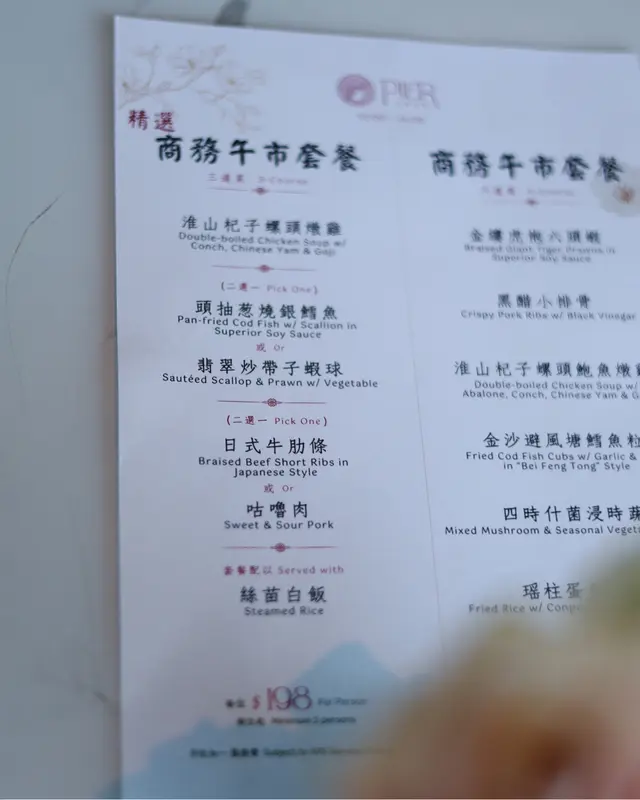 PIER
精選
商務午市套餐
三道菜 3-Course
淮山杞子螺頭燉雞
Double-boiled Chicken Soup w/
Conch, Chinese Yam & Goji
(二選一 Pick One)
頭抽葱燒銀鱈魚
Pan-fried Cod Fish w/ Scallion in
Superior Soy Sauce
或 Or
翡翠炒帶子蝦球
Sautéed Scallop & Prawn w/ Vegetable
(二選一 Pick One)
日式牛肋條
Braised Beef Short Ribs in
Japanese Style
或 Or
咕嚕肉
Sweet & Sour Pork
套餐配以 Served with
絲苗白飯
Steamed Rice
每位 $198 Per Person
Minimum 2 persons
商務午市套餐
Braised Giant Tiger Prawns in
Superior Soy Sauce
黑醋小排骨
Crispy Pork Ribs w/ Black Vinegar
淮山杞子螺頭鮑魚燉
Double-boiled Chicken Soup w/
Abalone, Conch, Chinese Yam & G
金沙避風塘鱈魚粒
Fried Cod Fish Cubs w/ Garlic &
in "Bei Feng Tong" Style
四時什菌浸時蔬
Mixed Mushroom & Seasonal Veget
瑶柱蛋
Fried Rice w/ Conpo